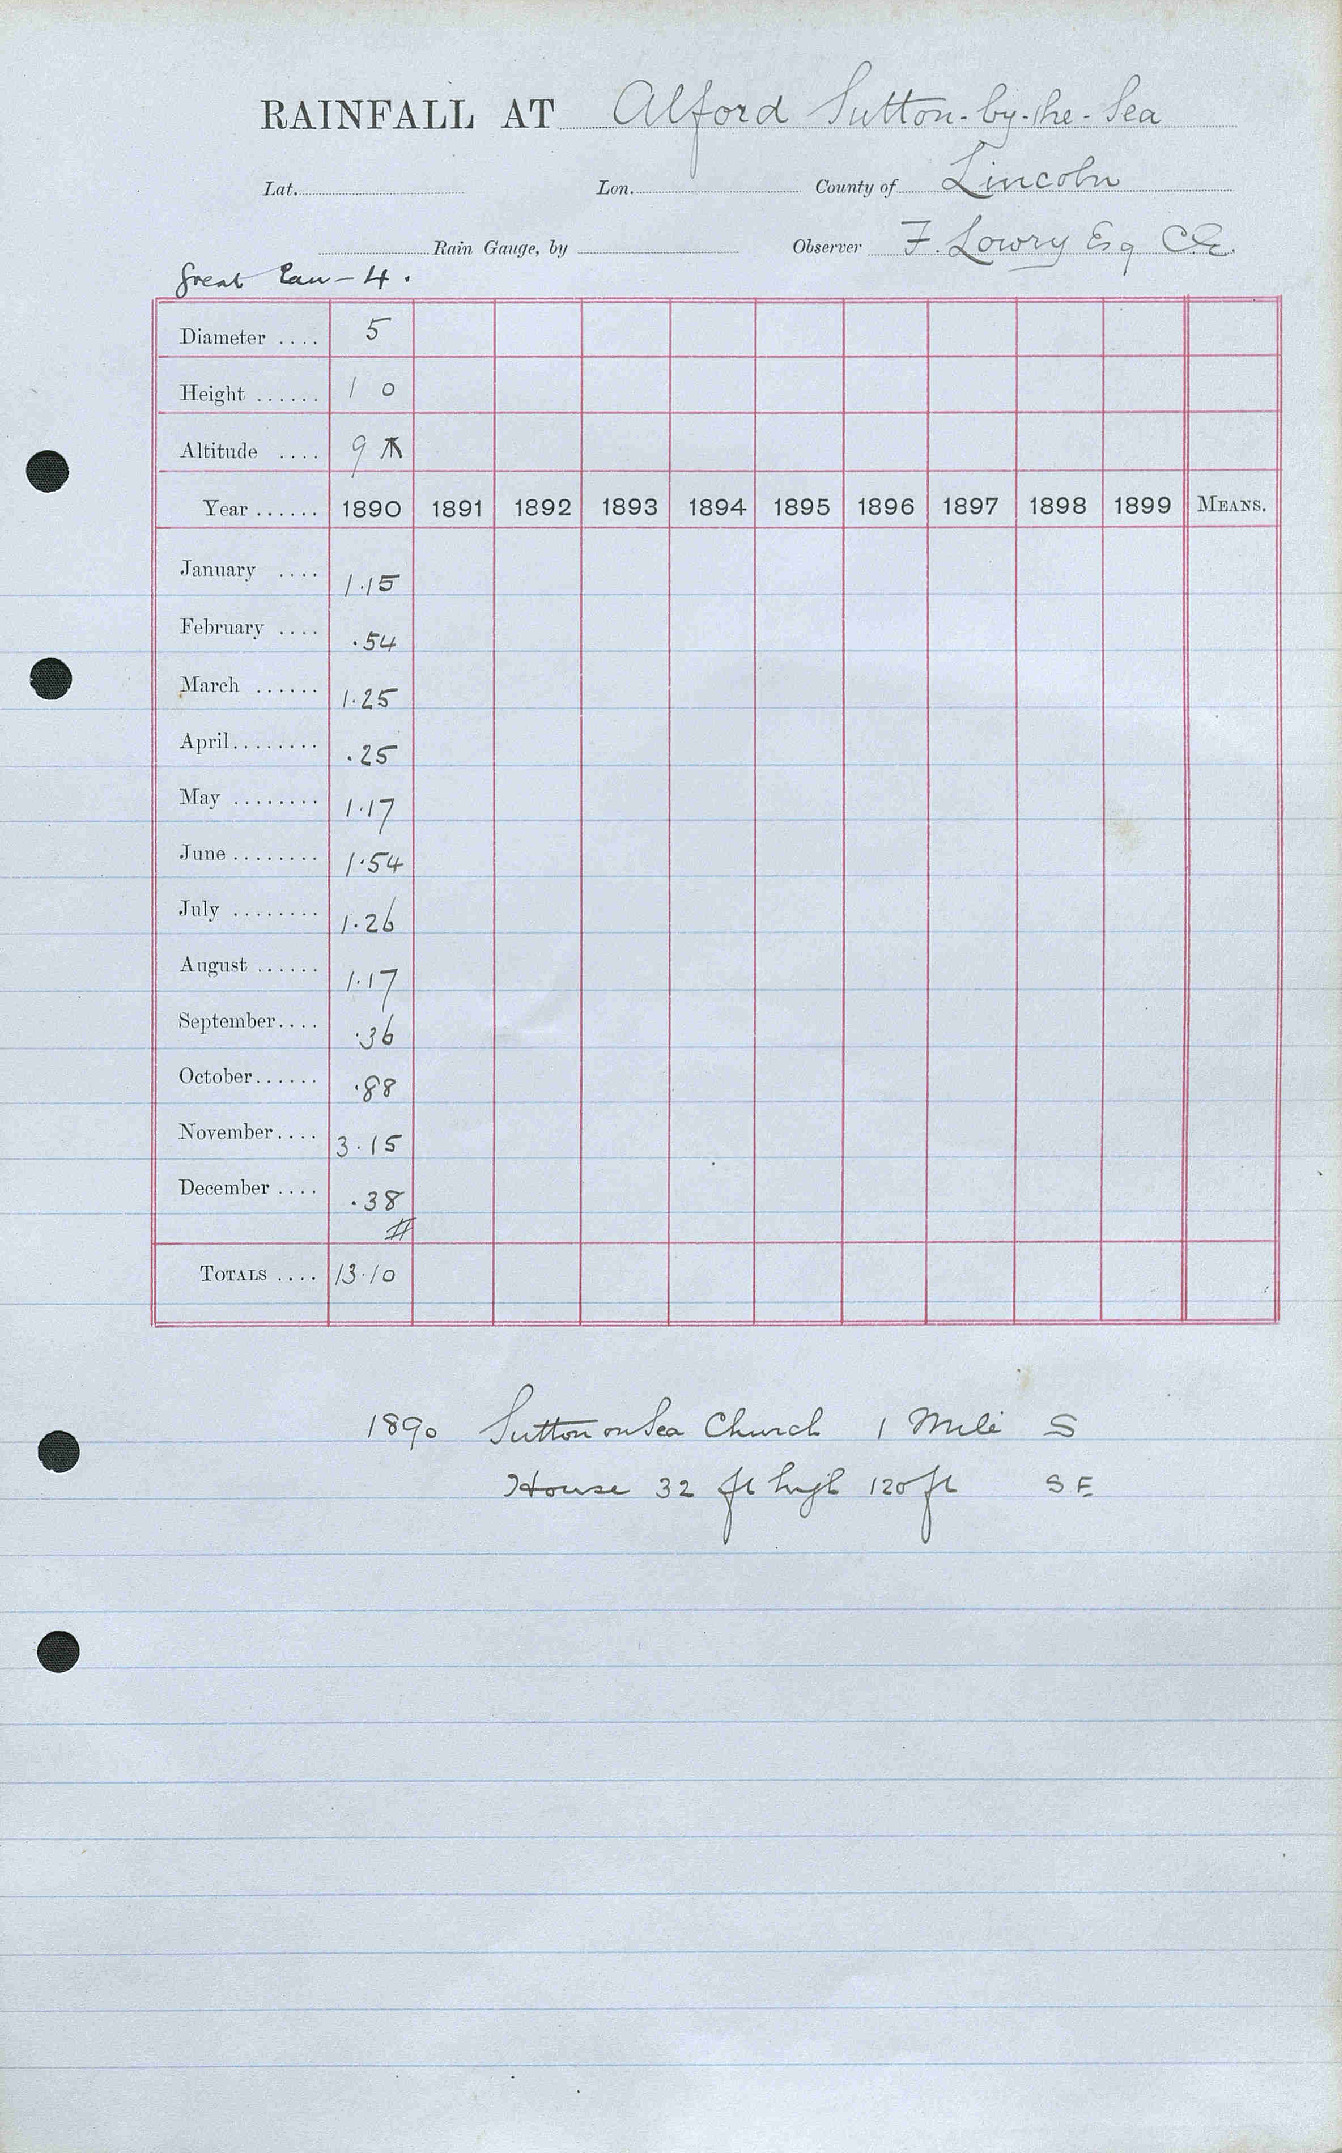 RAINFALL AT Alford Sutton-by-the-Sea
Lat. Lon. County of Lincoln
Rain Gauge, by Observer F. Lowry Esq C.E.
Great Eau - 4.
Diameter .... 5
Height ...... 1 0
Altitude .... 9
Year ...... 1890 1891 1892 1893 1894 1895 1896 1897 1898 1899 MEANS.
January .... 1.15
February .... .54
March ...... 1.25
April........ .25
May ........ 1.17
June ........ 1.54
July ........ 1.26
August ...... 1.17
September.... .36
October...... .88
November.... 3.15
December .... .38
#
TOTALS .... 13.10
1890 Sutton on Sea Church 1 Mile S
House 32 ft high 120 ft SE